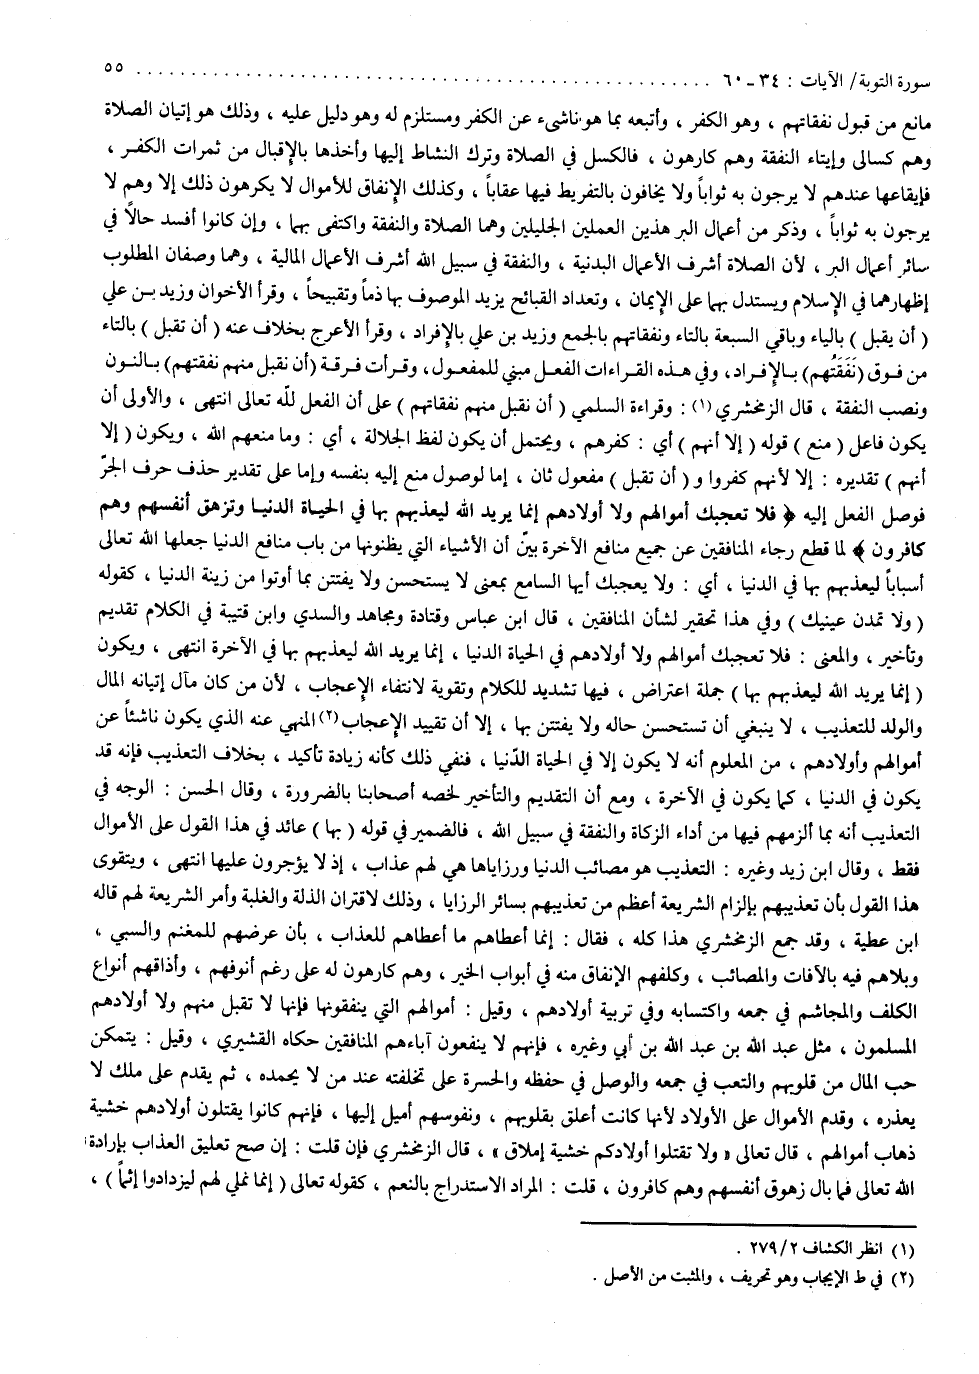 سورة التوبة/ الآيات : ٣٤ - ٦٠ ................................................ ٥٥
مانع من قبول نفقاتهم ، وهو الكفر ، وأتبعه بما هو ناشىء عن الكفر ومستلزم له وهو دليل عليه ، وذلك هو إتيان الصلاة
وهم كسالى وإيتاء النفقة وهم كارهون ، فالكسل في الصلاة وترك النشاط إليها وأخذها بالإقبال من ثمرات الكفر ،
فإيقاعها عندهم لا يرجون به ثواباً ولا يخافون بالتفريط فيها عقاباً ، وكذلك الإنفاق للأموال لا يكرهون ذلك إلا وهم لا
يرجون به ثواباً ، وذكر من أعمال البر هذين العملين الجليلين وهما الصلاة والنفقة واكتفى بهما ، وإن كانوا أفسد حالاً في
سائر أعمال البر ، لأن الصلاة أشرف الأعمال البدنية ، والنفقة في سبيل الله أشرف الأعمال المالية ، وهما وصفان المطلوب
إظهارهما في الإسلام ويستدل بهما على الإيمان ، وتعداد القبائح يزيد الموصوف بها ذماً وتقبيحاً ، وقرأ الأخوان وزيد بن علي
( أن يقبل ) بالياء وباقي السبعة بالتاء ونفقاتهم بالجمع وزيد بن علي بالإفراد ، وقرأ الأعرج بخلاف عنه ( أن تقبل ) بالتاء
من فوق (نَفَقَتُهم) بالإفراد، وفي هذه القراءات الفعل مبني للمفعول، وقرأت فرقة (أن نقبل منهم نفقتهم) بالنون
ونصب النفقة ، قال الزمخشري (١) : وقراءة السلمي ( أن نقبل منهم نفقاتهم ) على أن الفعل للّه تعالى انتهى ، والأولى أن
يكون فاعل ( منع ) قوله ( إلا أنهم ) أي : كفرهم ، ويحتمل أن يكون لفظ الجلالة ، أي : وما منعهم الله ، ويكون ( إلا
أنهم ) تقديره : إلا لأنهم كفروا و ( أن تقبل ) مفعول ثان ، إما لوصول منع إليه بنفسه وإما على تقدير حذف حرف الجرّ
فوصل الفعل إليه ﴿ فلا تعجبك أموالهم ولا أولادهم إنما يريد الله ليعذبهم بها في الحياة الدنيا وتزهق أنفسهم وهم
كافرون ﴾ لما قطع رجاء المنافقين عن جميع منافع الآخرة بيّن أن الأشياء التي يظنونها من باب منافع الدنيا جعلها الله تعالى
أسباباً ليعذبهم بها في الدنيا ، أي : ولا يعجبك أيها السامع بمعنى لا يستحسن ولا يفتتن بما أوتوا من زينة الدنيا ، كقوله
( ولا تمدن عينيك ) وفي هذا تحقير لشأن المنافقين ، قال ابن عباس وقتادة ومجاهد والسدي وابن قتيبة في الكلام تقديم
وتأخير ، والمعنى : فلا تعجبك أموالهم ولا أولادهم في الحياة الدنيا ، إنما يريد الله ليعذبهم بها في الآخرة انتهى ، ويكون
( إنما يريد الله ليعذبهم بها ) جملة اعتراض ، فيها تشديد للكلام وتقوية لانتفاء الإعجاب ، لأن من كان مآل إتيانه المال
والولد للتعذيب ، لا ينبغي أن تستحسن حاله ولا يفتتن بها ، إلا أن تقييد الإعجاب (٢) المنهي عنه الذي يكون ناشئاً عن
أموالهم وأولادهم ، من المعلوم أنه لا يكون إلا في الحياة الدّنيا ، فنفي ذلك كأنه زيادة تأكيد ، بخلاف التعذيب فإنه قد
يكون في الدنيا ، كما يكون في الآخرة ، ومع أن التقديم والتأخير لخصه أصحابنا بالضرورة ، وقال الحسن : الوجه في
التعذيب أنه بما ألزمهم فيها من أداء الزكاة والنفقة في سبيل الله ، فالضمير في قوله ( بها ) عائد في هذا القول على الأموال
فقط ، وقال ابن زيد وغيره : التعذيب هو مصائب الدنيا ورزاياها هي لهم عذاب ، إذ لا يؤجرون عليها انتهى ، ويتقوى
هذا القول بأن تعذيبهم بإلزام الشريعة أعظم من تعذيبهم بسائر الرزايا ، وذلك لاقتران الذلة والغلبة وأمر الشريعة لهم قاله
ابن عطية ، وقد جمع الزمخشري هذا كله ، فقال : إنما أعطاهم ما أعطاهم للعذاب ، بأن عرضهم للمغنم والسبي ،
وبلاهم فيه بالآفات والمصائب ، وكلفهم الإنفاق منه في أبواب الخير ، وهم كارهون له على رغم أنوفهم ، وأذاقهم أنواع
الكلف والمجاشم في جمعه واكتسابه وفي تربية أولادهم ، وقيل : أموالهم التي ينفقونها فإنها لا تقبل منهم ولا أولادهم
المسلمون ، مثل عبد الله بن عبد الله بن أبي وغيره ، فإنهم لا ينفعون آباءهم المنافقين حكاه القشيري ، وقيل : يتمكن
حب المال من قلوبهم والتعب في جمعه والوصل في حفظه والحسرة على تخلفته عند من لا يحمده ، ثم يقدم على ملك لا
يعذره ، وقدم الأموال على الأولاد لأنها كانت أعلق بقلوبهم ، ونفوسهم أميل إليها ، فإنهم كانوا يقتلون أولادهم خشية
ذهاب أموالهم ، قال تعالى « ولا تقتلوا أولادكم خشية إملاق » ، قال الزمخشري فإن قلت : إن صح تعليق العذاب بإرادة
الله تعالى فما بال زهوق أنفسهم وهم كافرون ، قلت : المراد الاستدراج بالنعم ، كقوله تعالى ( إنما نملي لهم ليزدادوا إثماً ) ،
(١) انظر الكشاف ٢٧٩/٢ .
(٢) في ط الإيجاب وهو تحريف ، والمثبت من الأصل .